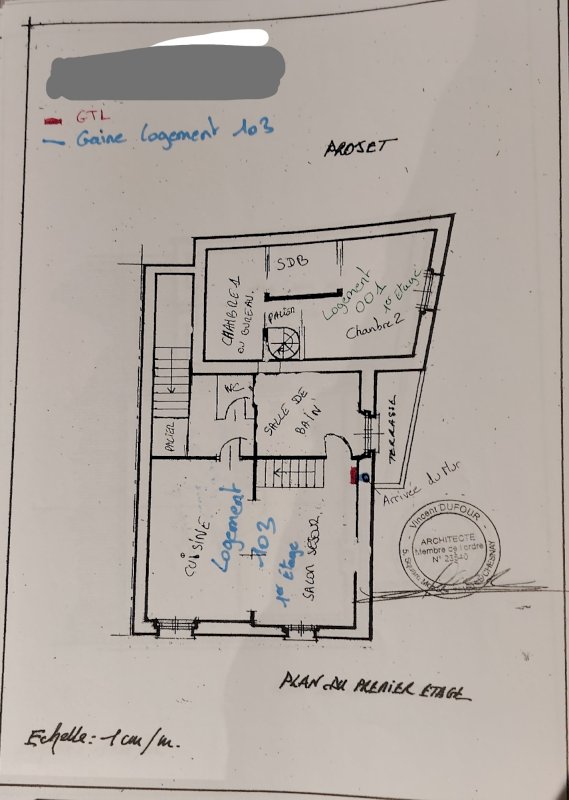 GTL
Gaine Logement 103
PROJET
SDB
CHAMBRE 1
OU BUREAU
PALIER
Logement
001
1er Etage
Chambre 2
WC
SALLE DE
BAIN
TERRASSE
PALIER
Arrivée du Mur
CUISINE
Logement
103
1er Etage
SALON SEJOUR
Vincent DUFOUR
ARCHITECTE
Membre de l'ordre
PLAN DU PREMIER ETAGE
Echelle : 1 cm/m.